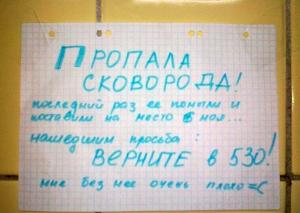 ПРОПАЛА
СКОВОРОДА!
последний раз ее помыли и
поставили на место 6 ноя...
нашедшим просьба:
ВЕРНИТЕ в 530!
мне без нее очень плохо =(